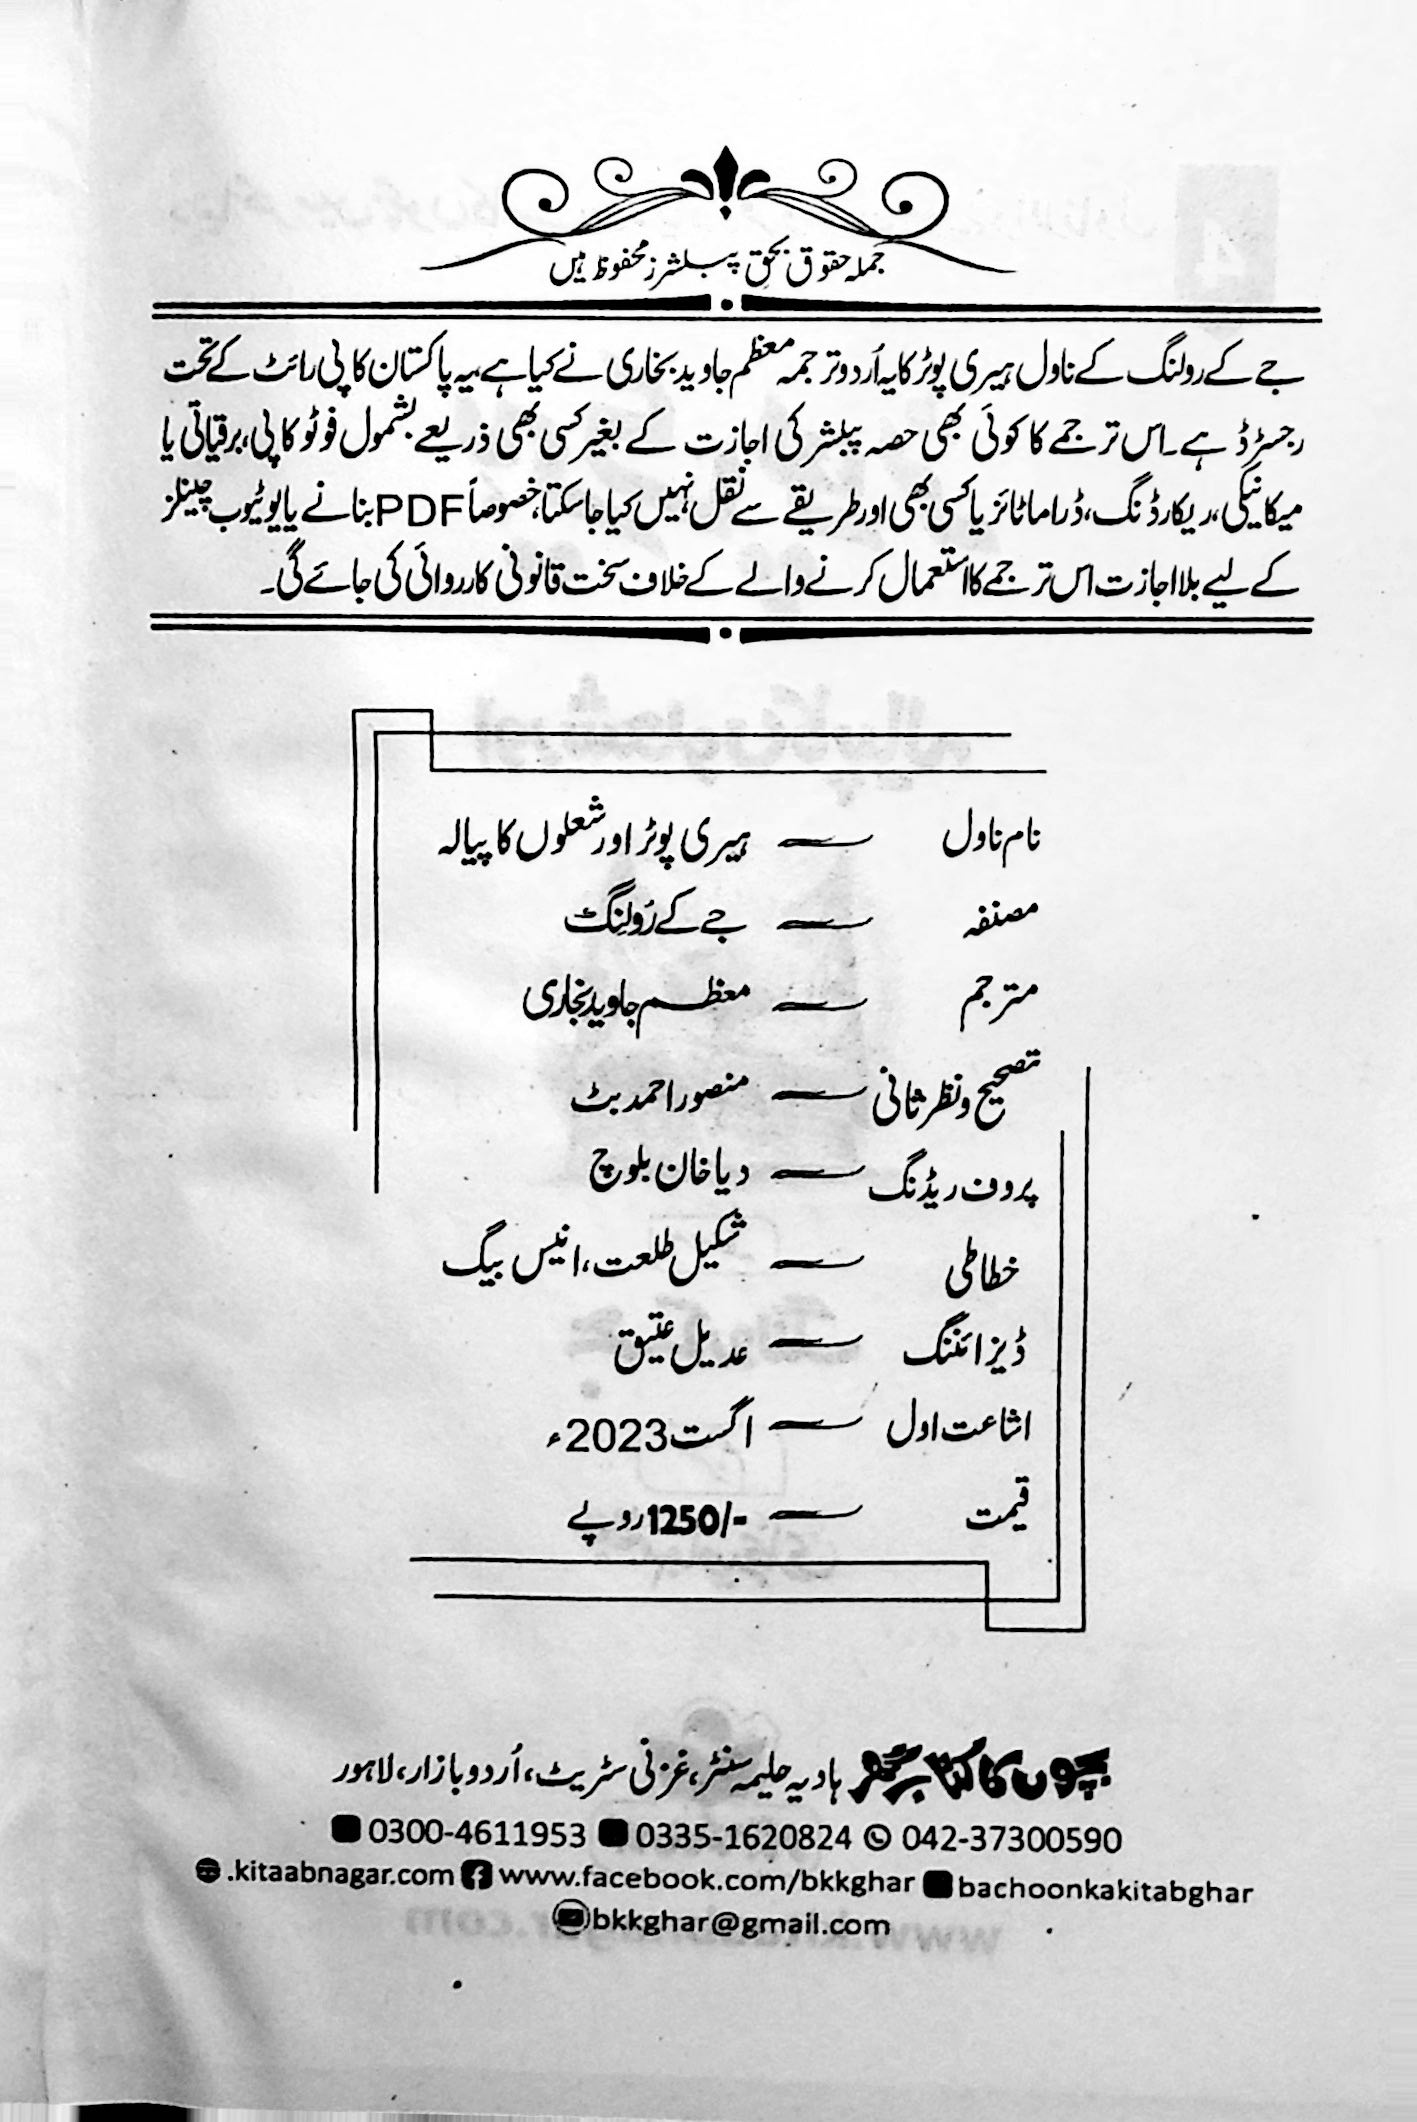 جملہ حقوق بحق پبلشرز محفوظ ہیں
جے کے رولنگ کے ناول ہیری پوٹر کا یہ اُردو ترجمہ معظم جاوید بخاری نے کیا ہے، یہ پاکستان کاپی رائٹ کے تحت
رجسٹرڈ ہے۔ اس ترجمے کا کوئی بھی حصہ پبلشر کی اجازت کے بغیر کسی بھی ذریعے بشمول فوٹو کاپی، برقیاتی یا
میکانیکی، ریکارڈنگ، ڈراماٹائز یا کسی بھی اور طریقے سے نقل نہیں کیا جا سکتا، خصوصاً PDF بنانے یا یوٹیوب چینلز
کے لیے بلا اجازت اس ترجمے کا استعمال کرنے والے کے خلاف سخت قانونی کارروائی کی جائے گی۔
نام ناول — ہیری پوٹر اور شعلوں کا پیالہ
مصنفہ — جے کے رَولِنگ
مترجم — معظم جاوید بخاری
تصحیح و نظر ثانی — منصور احمد بٹ
پروف ریڈنگ — دیا خان بلوچ
خطاطی — شکیل طلعت، انیس بیگ
ڈیزائننگ — عدیل عتیق
اشاعت اول — اگست 2023ء
قیمت — 1250/- روپے
بچوں کا کتاب گھر ہادیہ حلیمہ سنٹر، غزنی سٹریٹ، اُردو بازار، لاہور
0300-4611953 0335-1620824 042-37300590
.kitaabnagar.com www.facebook.com/bkkghar bachoonkakitabghar
bkkghar@gmail.com